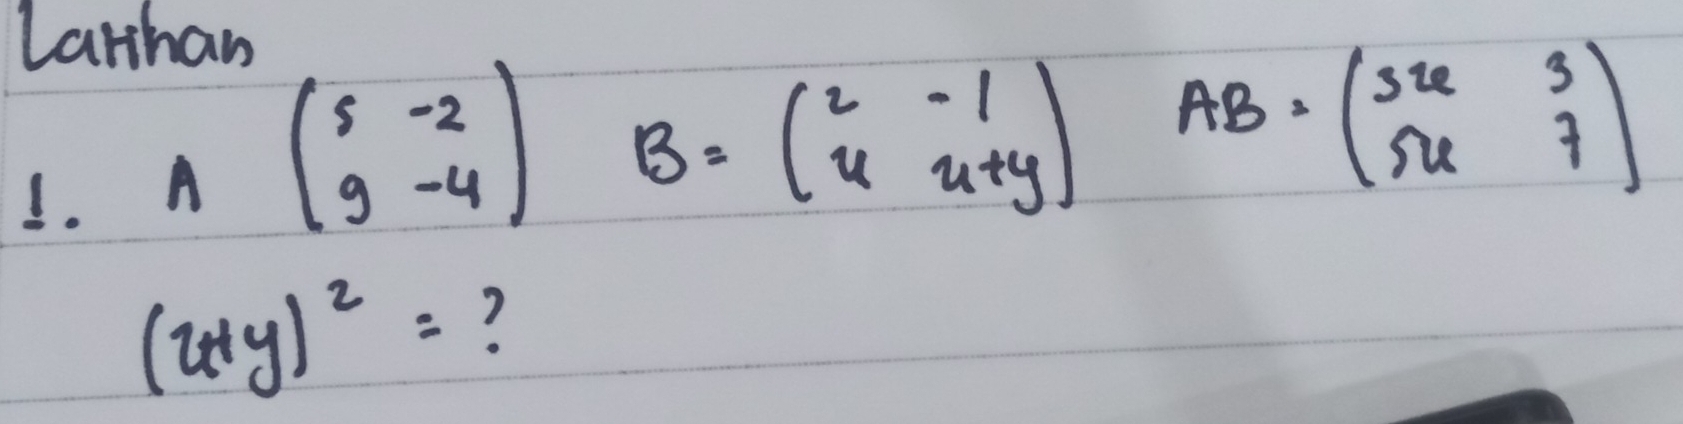 Latihan
1. A (5 -2 9 -4) B = (2 -1 x x+y) AB = (3x 3 5x 7)
(x+y)² = ?